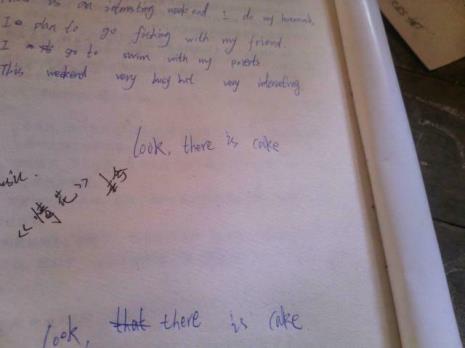 is an interesting weekend I do my homework.
I plan to go fishing with my friend.
I go to swim with my parents
This weekend very busy but very interesting.
look, there is cake
music.
look, that there is cake